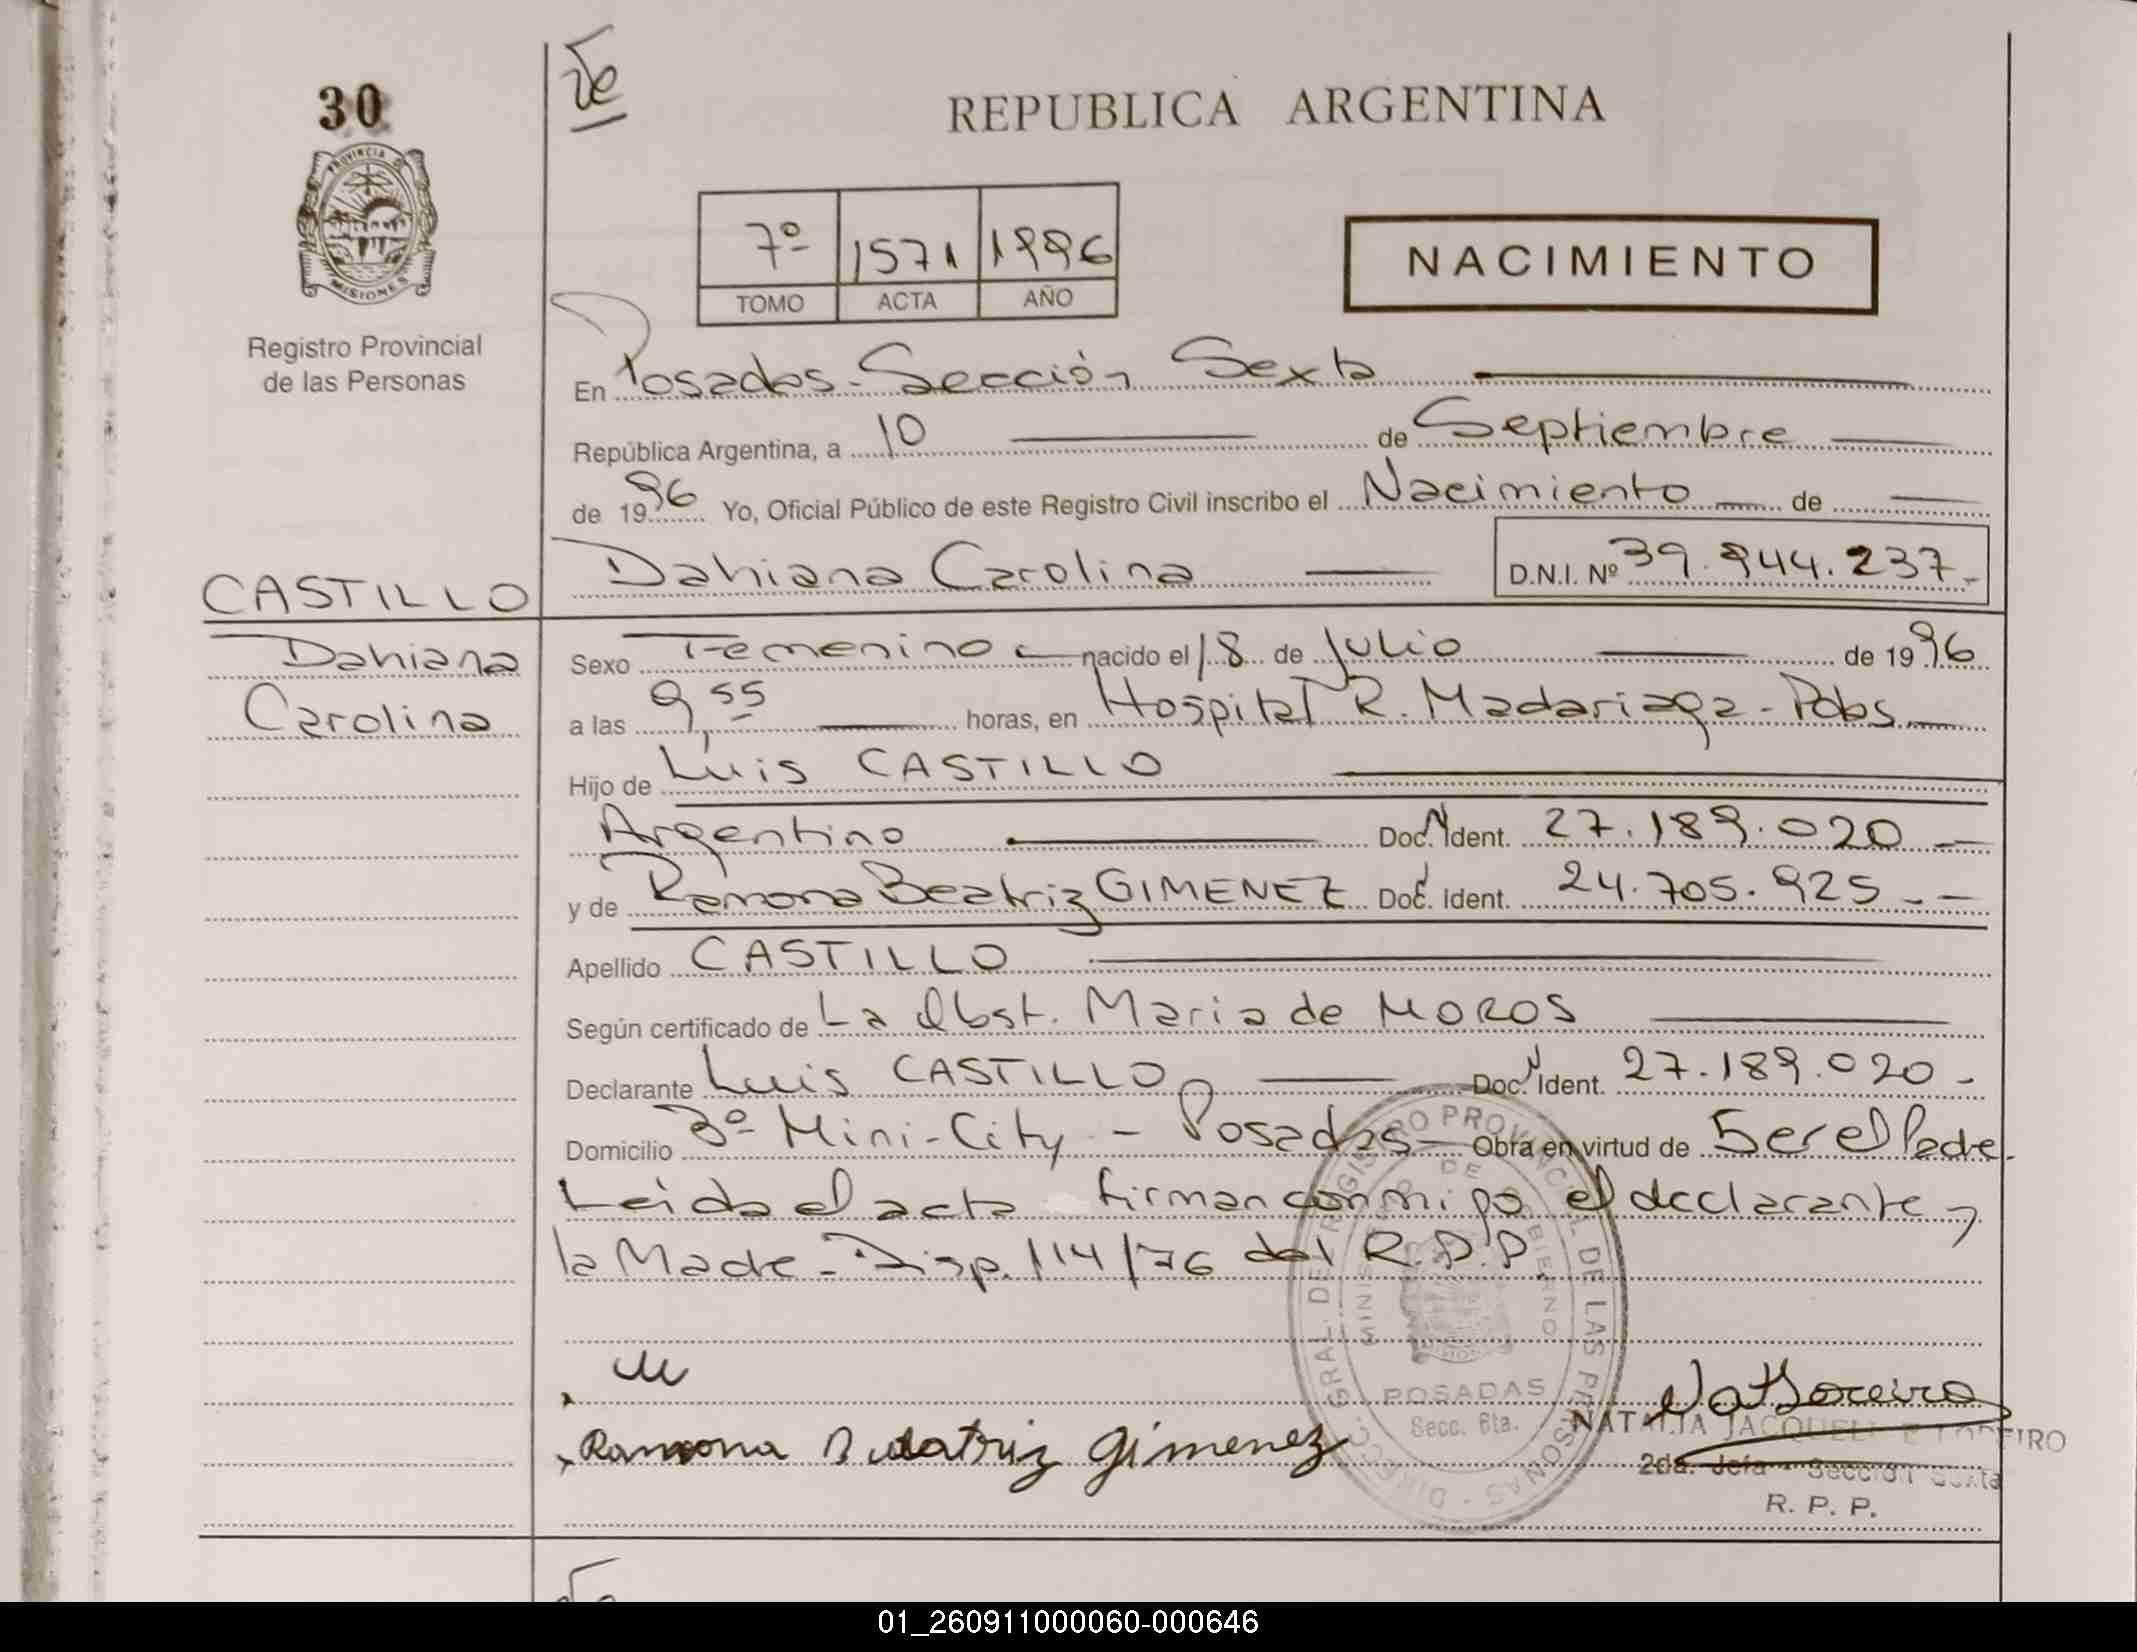 30
REPUBLICA ARGENTINA
PROVINCIA DE
MISIONES
Registro Provincial
de las Personas
7º 1571 1996
TOMO ACTA AÑO
NACIMIENTO
En Posadas-Sección Sexta
República Argentina, a 10 de Septiembre
de 1996 Yo, Oficial Público de este Registro Civil inscribo el Nacimiento de
Dahiana Carolina D.N.I. Nº 39.944.237-
CASTILLO
Dahiana
Carolina
Sexo Femenino nacido el 18 de Julio de 1996
a las 9,55 horas, en Hospital R. Madariaga-Pdas.
Hijo de Luis CASTILLO
Argentino Doc. Ident. 27.189.020
y de Ramona Beatriz GIMENEZ Doc. Ident. 24.705.925.-
Apellido CASTILLO
Según certificado de La Obst. Maria de MOROS
Declarante Luis CASTILLO Doc. Ident. 27.189.020-
Domicilio Bº Mini-City - Posadas- Obra en virtud de Ser el Padre.
Leida el acta firman conmigo el declarante y
la Madre-Disp. 114/76 del R.P.P.
Ramona Beatriz Gimenez
DIRECC. GRAL. DEL REGISTRO PROVINCIAL DE LAS PERSONAS
MINISTERIO DE GOBIERNO
POSADAS
Secc. 6ta.
NATALIA JACQUELINE LOREIRO
2da. Jefa - Sección Sexta
R. P. P.
01_260911000060-000646